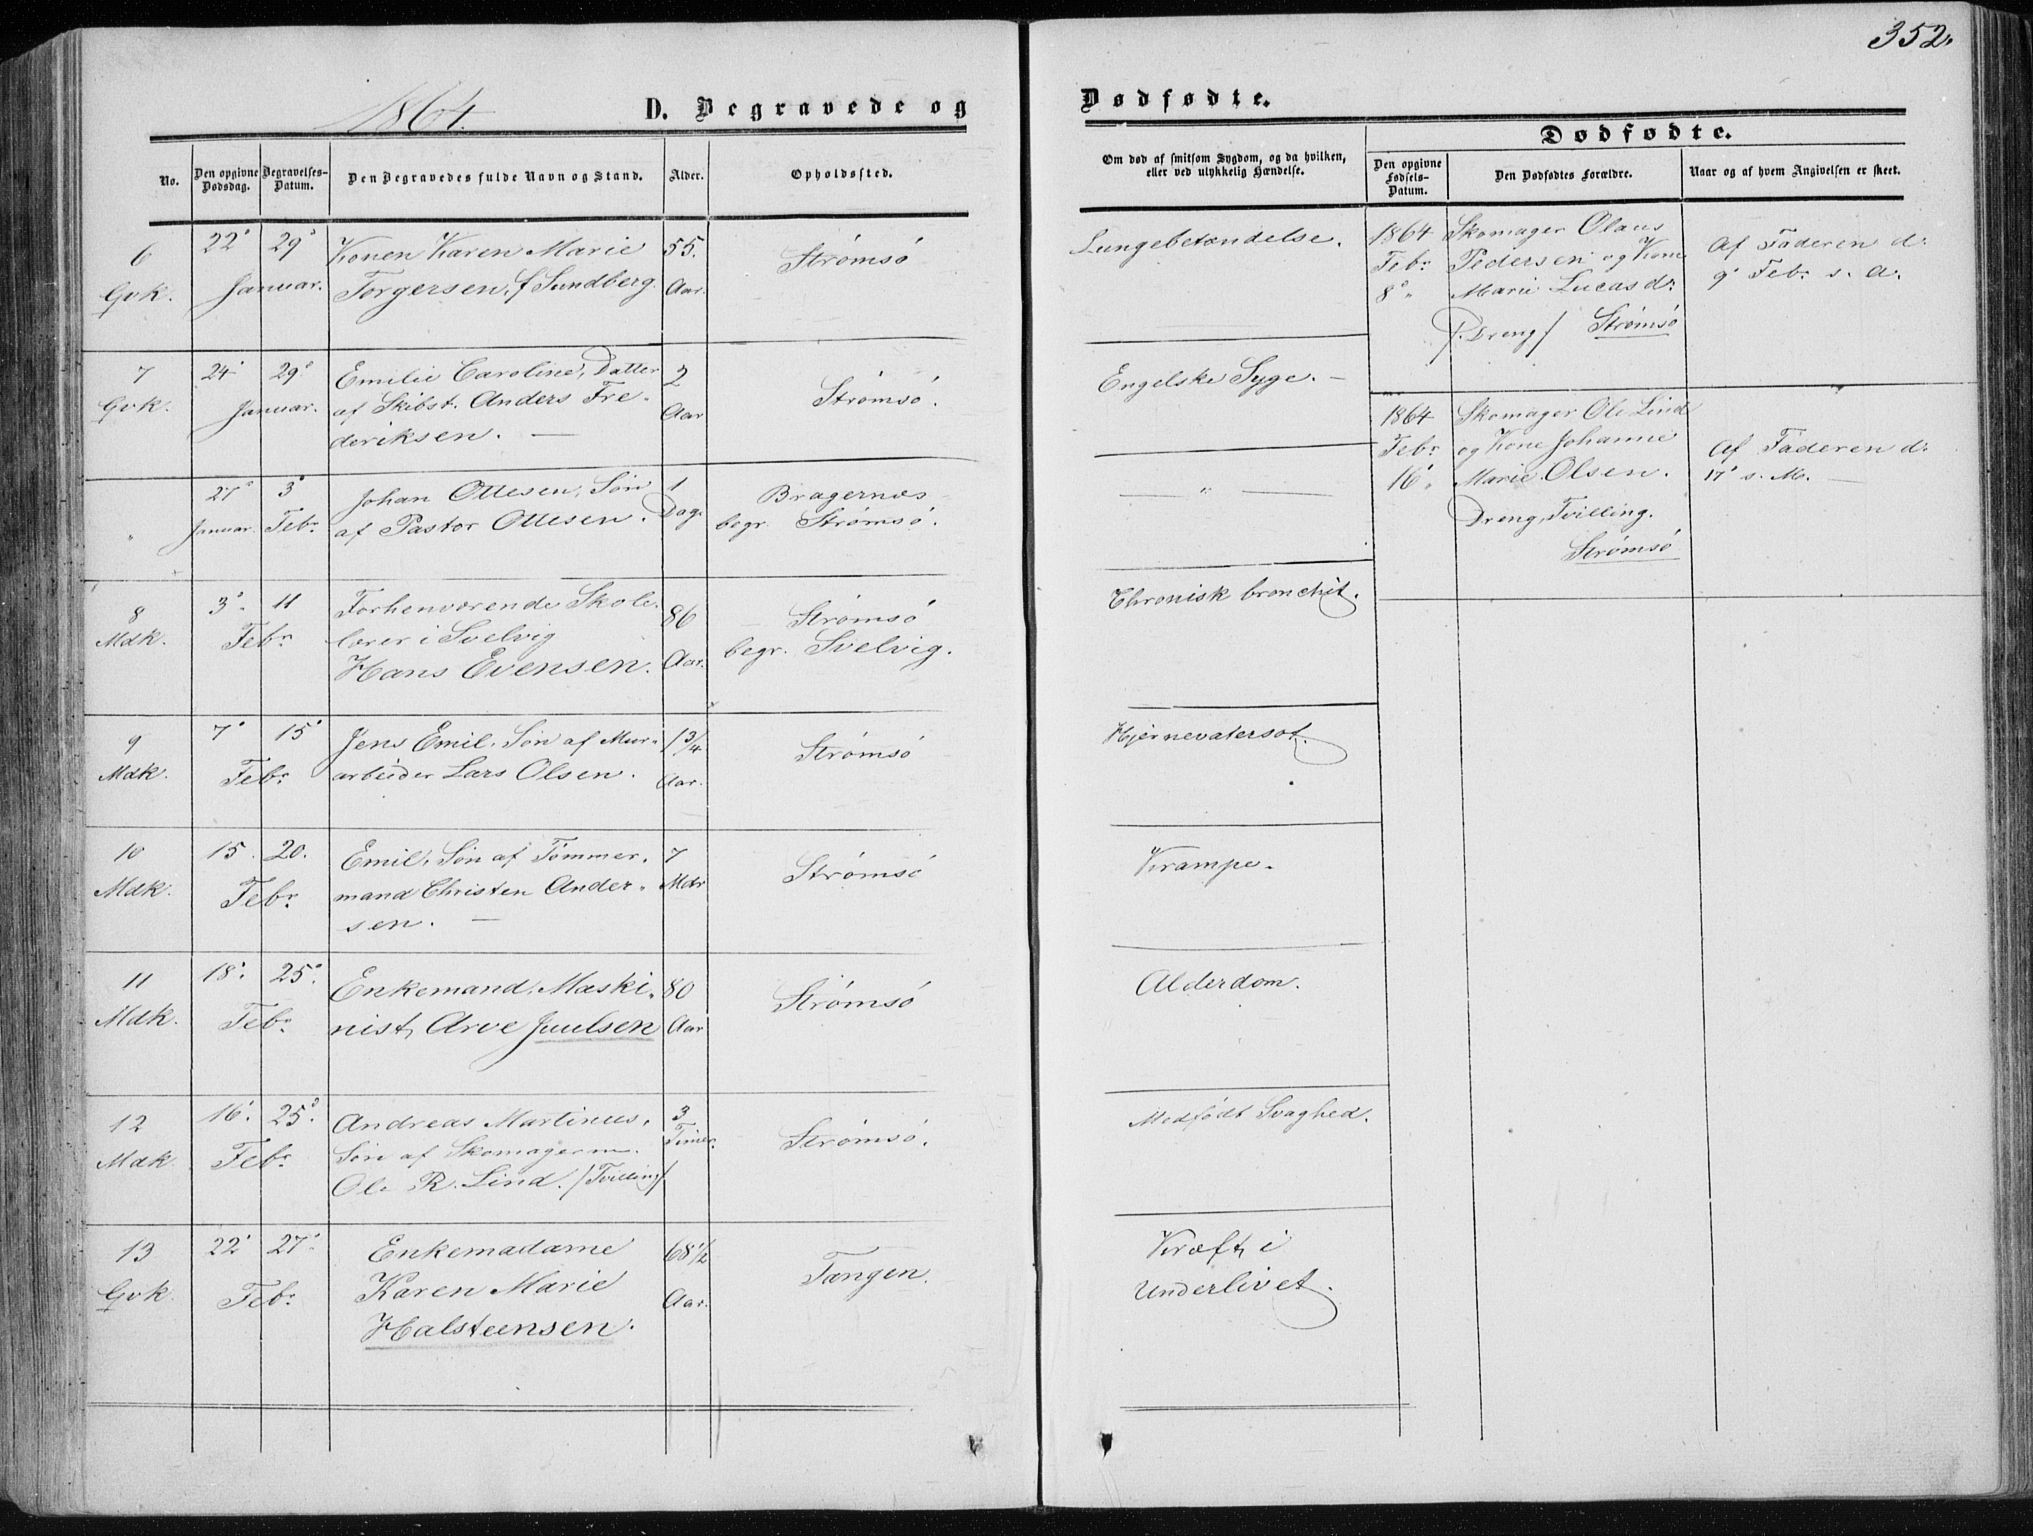 352.
1864.
D. Begravede og
Dødfødte.
No.
Den opgivne Dødsdag.
Begravelses-Datum.
Den Begravedes fulde Navn og Stand.
Alder.
Opholdssted.
Om død af smitsom Sygdom, og da hvilken, eller ved ulykkelig Hændelse.
Dødfødte.
Den opgivne Fødsels-Datum.
Den Dødfødtes Forældre.
Naar og af hvem Angivelsen er skeet.
6
Qvk.
22 29
Januar.
Konen Karen Marie
Torgersen, f Sundberg.
55.
Aar.
Strømsö
Lungebetændelse.
7
Qvk.
24 29
Januar.
Emilie Caroline, Datter
af Skibst. Anders Fre-
deriksen. —
2
Aar
Strømsö.
Engelske Syge. —
"
27 3
Januar. Febr.
Johan Ottesen, Sön
af Pastor Ottesen.
1
Dag.
Bragernæs
begr. Strømsö.
— " —
8
Mdk.
3 11
Febr.
Forhenværende Skole-
lærer i Svelvig
Hans Evensen.
86
Aar.
Strømsö
begr. Svelvig.
Chronisk bronchit.
9
Mdk.
7 15
Febr.
Jens Emil, Sön af Mur-
arbeider Lars Olsen.
1 3/4
Aar.
Strømsö
Hjernevatersot.
10
Mdk.
15. 20.
Febr.
Emil, Sön af Tömmer-
mand Christen Ander-
sen. —
7
Mdr
Strømsö
Krampe.
11
Mdk.
18. 25.
Febr.
Enkemand, Maski-
nist, Arve Juulsen
80
Aar
Strømsö
Alderdom.
12
Mdk
16. 25.
Febr.
Andreas Martinus,
Sön af Skomagerm.
Ole R. Lind. /Tvilling/
3
Timer.
Strømsö.
Medfödt Svaghed.
13
Qvk.
22 27
Febr.
Enkemadame
Karen Marie
Halsteensen.
68 1/2
Aar.
Tangen.
Kræft i
Underlivet.
1864
Febr.
8 "
Skomager Olaus
Pedersen og Kone
Marie Lucasdr.
/: Dreng / Strømsö
Af Faderen d.
9 Febr. s. A.
1864
Febr.
16 "
Skomager Ole Lind
og Kone Johanne
Marie Olsen.
Dreng, Tvilling.
Strømsö
Af Faderen d.
17 s. M. —